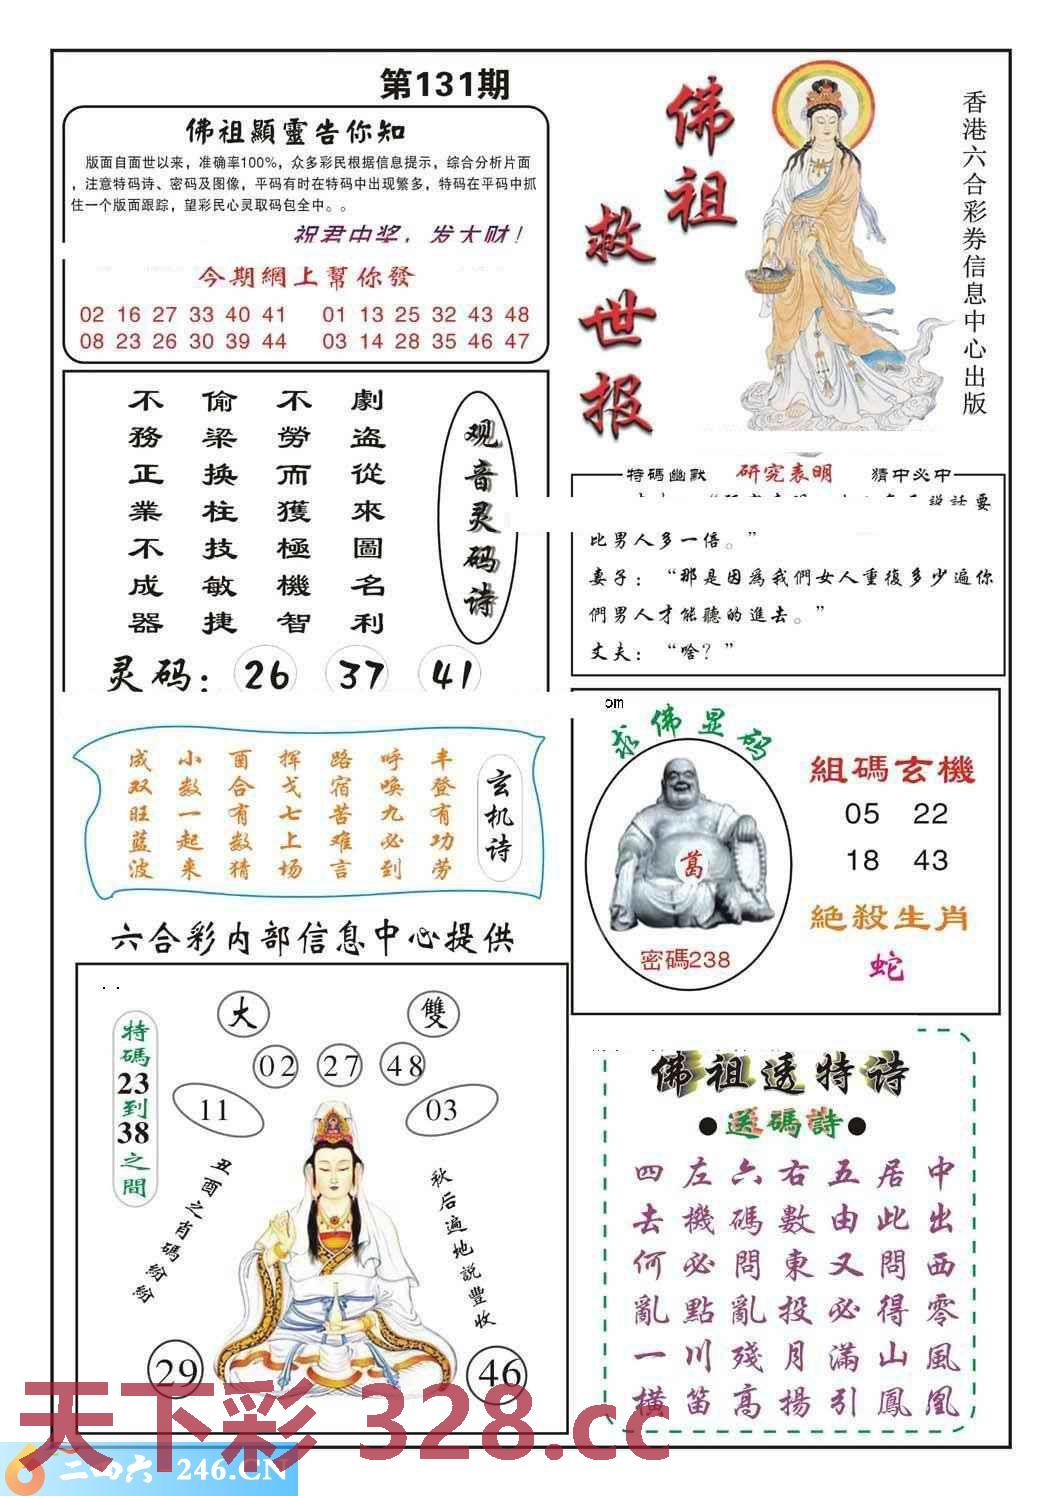 第131期
佛祖顯靈告你知
版面自面世以来，准确率100%，众多彩民根据信息提示，综合分析片面
，注意特码诗、密码及图像，平码有时在特码中出现繁多，特码在平码中抓
住一个版面跟踪，望彩民心灵取码包全中。。
祝君中奖，发大财！
今期網上幫你發
02 16 27 33 40 41 01 13 25 32 43 48
08 23 26 30 39 44 03 14 28 35 46 47
佛祖
救世报
香港六合彩券信息中心出版
观音灵码诗
劇盗從來圖名利
不勞而獲極機智
偷梁换柱技敏捷
不務正業不成器
灵码：26 37 41
特碼幽默 研究表明 猜中必中
説話要
比男人多一倍。”
妻子：“那是因爲我們女人重復多少遍你
們男人才能聽的進去。”
丈夫：“啥？”
玄机诗
丰登有功劳
呼唤九必到
路宿苦难言
挥戈七上场
酉合有数猜
小数一起来
成双旺蓝波
om
求佛显码
葛
密碼238
組碼玄機
05 22
18 43
絶殺生肖
蛇
六合彩内部信息中心提供
特碼23到38之間
大 雙
02 27 48
11 03
丑酉之肖碼紛紛
秋后遍地説豐收
29 46
佛祖透特诗
送碼詩
中出西零風凰
居此問得山鳳
五由又必滿引
右數東投月揚
六碼問亂殘高
左機必點川笛
四去何亂一橫
天下彩 328.cc
二四六 246.CN